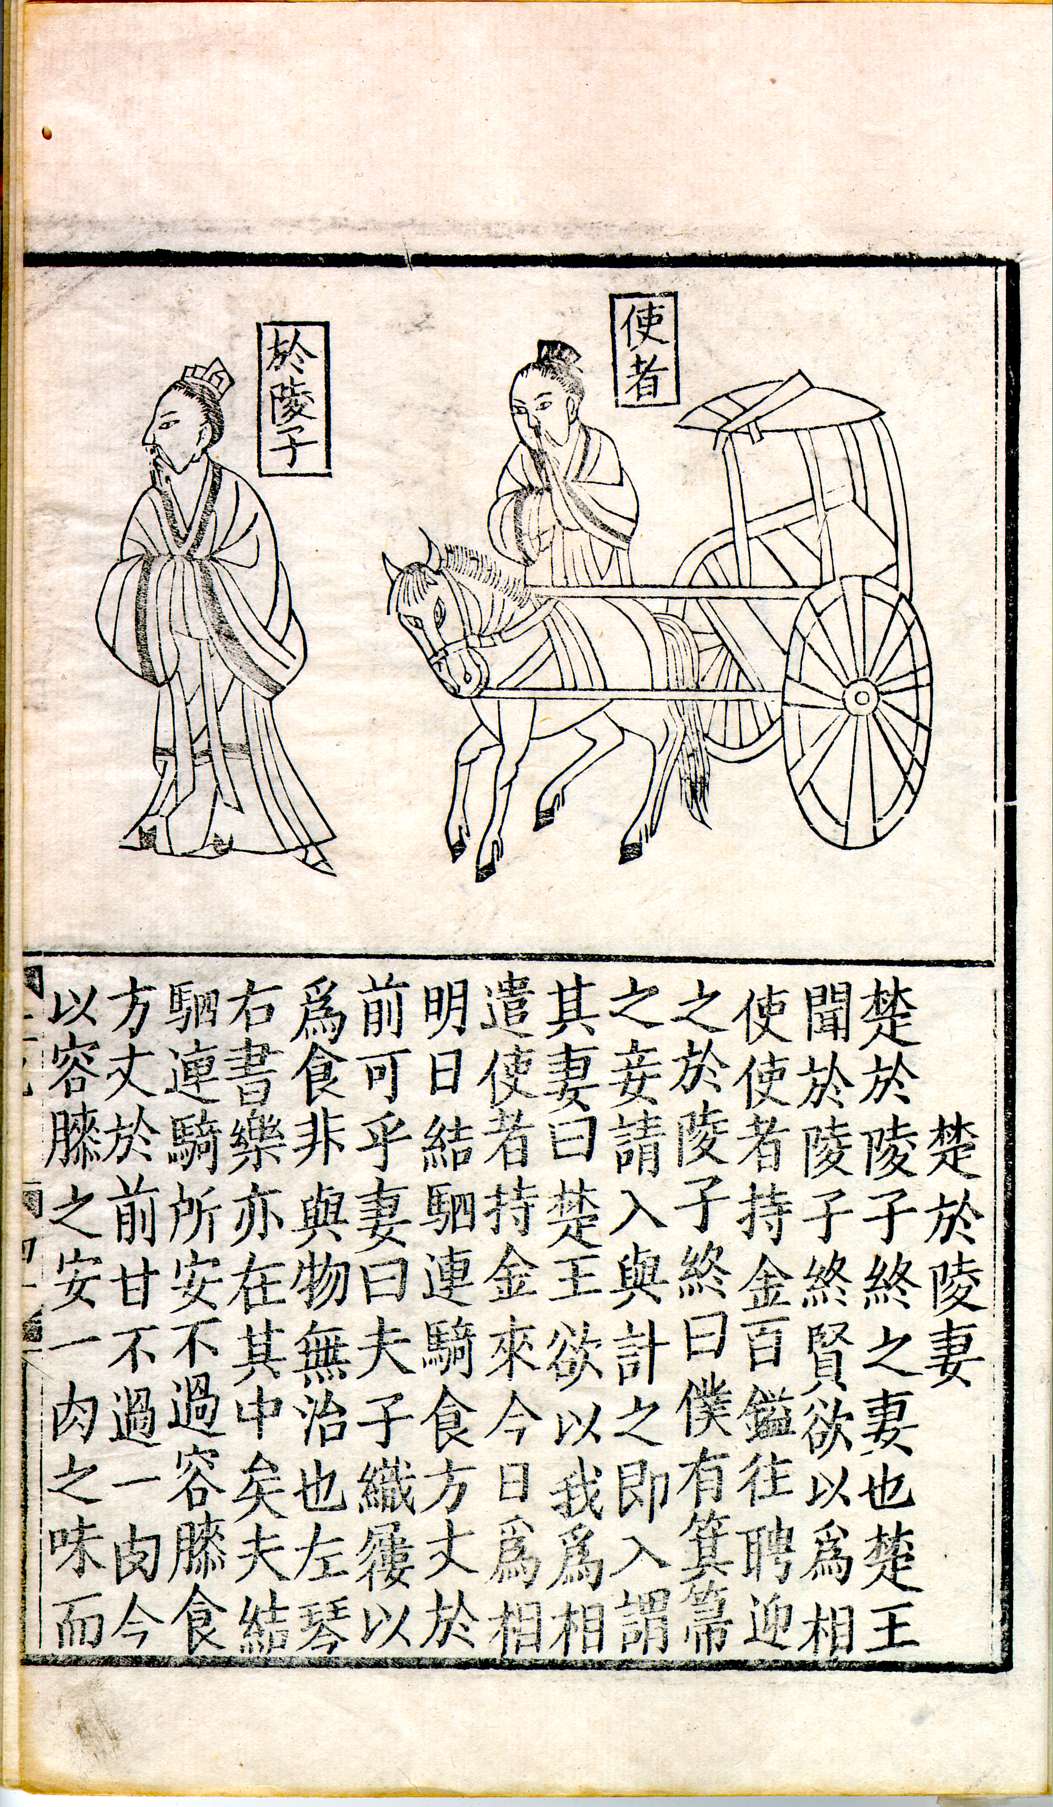 使者
於陵子
楚於陵妻
楚於陵子終之妻也楚王
聞於陵子終賢欲以爲相
使使者持金百鎰往聘迎
之於陵子終曰僕有箕箒
之妾請入與計之即入謂
其妻曰楚王欲以我爲相
遣使者持金來今日爲相
明日結駟連騎食方丈於
前可乎妻曰夫子織屨以
爲食非與物無治也左琴
右書樂亦在其中矣夫結
駟連騎所安不過容膝食
方丈於前甘不過一肉今
以容膝之安一肉之味而